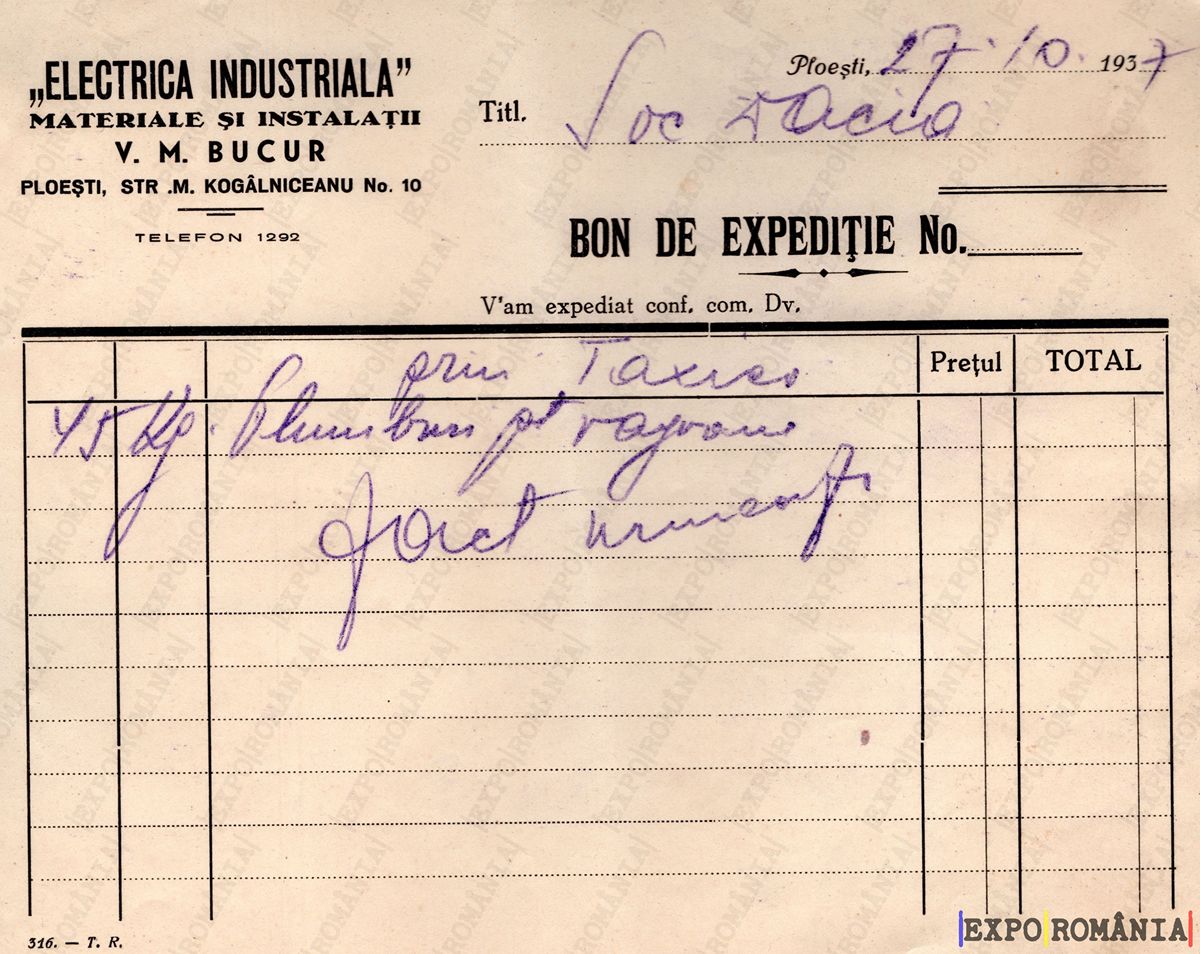 „ELECTRICA INDUSTRIALA”
MATERIALE ȘI INSTALAȚII
V. M. BUCUR
PLOEȘTI, STR .M. KOGÂLNICEANU No. 10
TELEFON 1292
Ploești, 27·10. 1937
Titl. Soc Dacia
BON DE EXPEDIȚIE No.
V'am expediat conf. com. Dv.
Prețul TOTAL
prin Taxico
45 Kg. Plumburi pt vagoane
316. — T. R.
EXPO ROMÂNIA